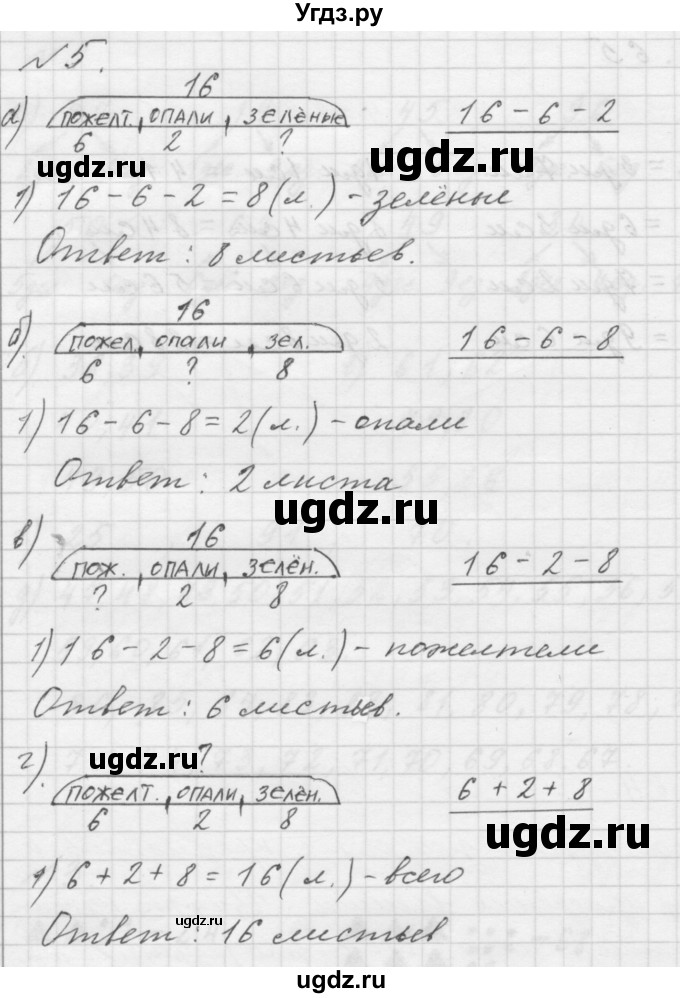 Угдз.ру
№5.
16
а) пожелт. опали, зелёные
6 2 ?
16 - 6 - 2
ugdz.ru ugdz.ru
1) 16 - 6 - 2 = 8 (л.) - зелёные
Ответ : 8 листьев.
16
б) пожел. опали, зел.
6 ? 8
16 - 6 - 8
ugdz.ru
1) 16 - 6 - 8 = 2 (л.) - опали
Ответ : 2 листа
ugdz.ru
16
в) пож. опали, зелён.
? 2 8
16 - 2 - 8
ugdz.ru
1) 16 - 2 - 8 = 6 (л.) - пожелтели
Ответ : 6 листьев.
ugdz.ru
?
г) пожелт. опали, зелён.
6 2 8
6 + 2 + 8
ugdz.ru
1) 6 + 2 + 8 = 16 (л.) - всего
ugdz.ru
Ответ : 16 листьев
ugdz.ru